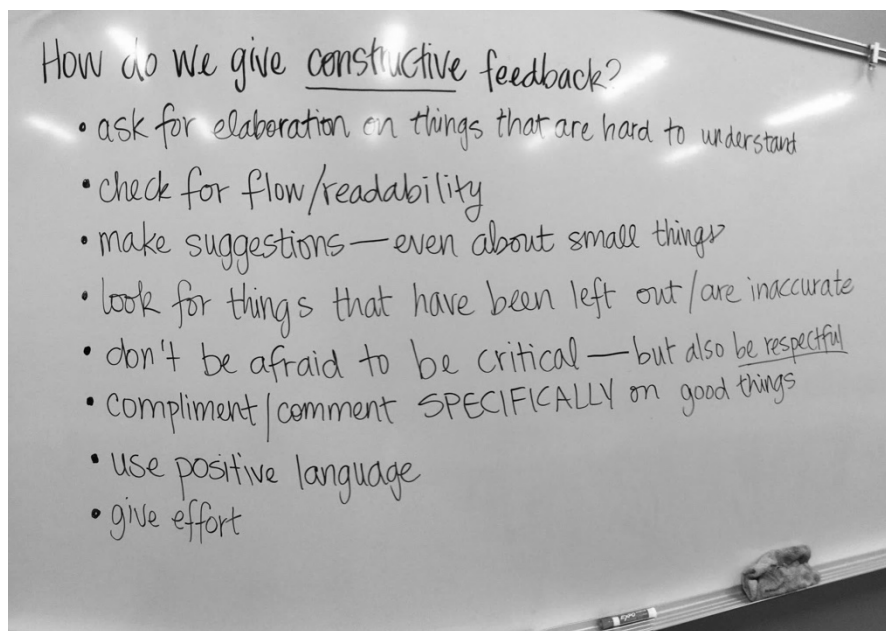 How do we give constructive feedback?
• ask for elaboration on things that are hard to understand
• check for flow/readability
• make suggestions—even about small things
• look for things that have been left out/are inaccurate
• don't be afraid to be critical—but also be respectful
• compliment/comment SPECIFICALLY on good things
• use positive language
• give effort